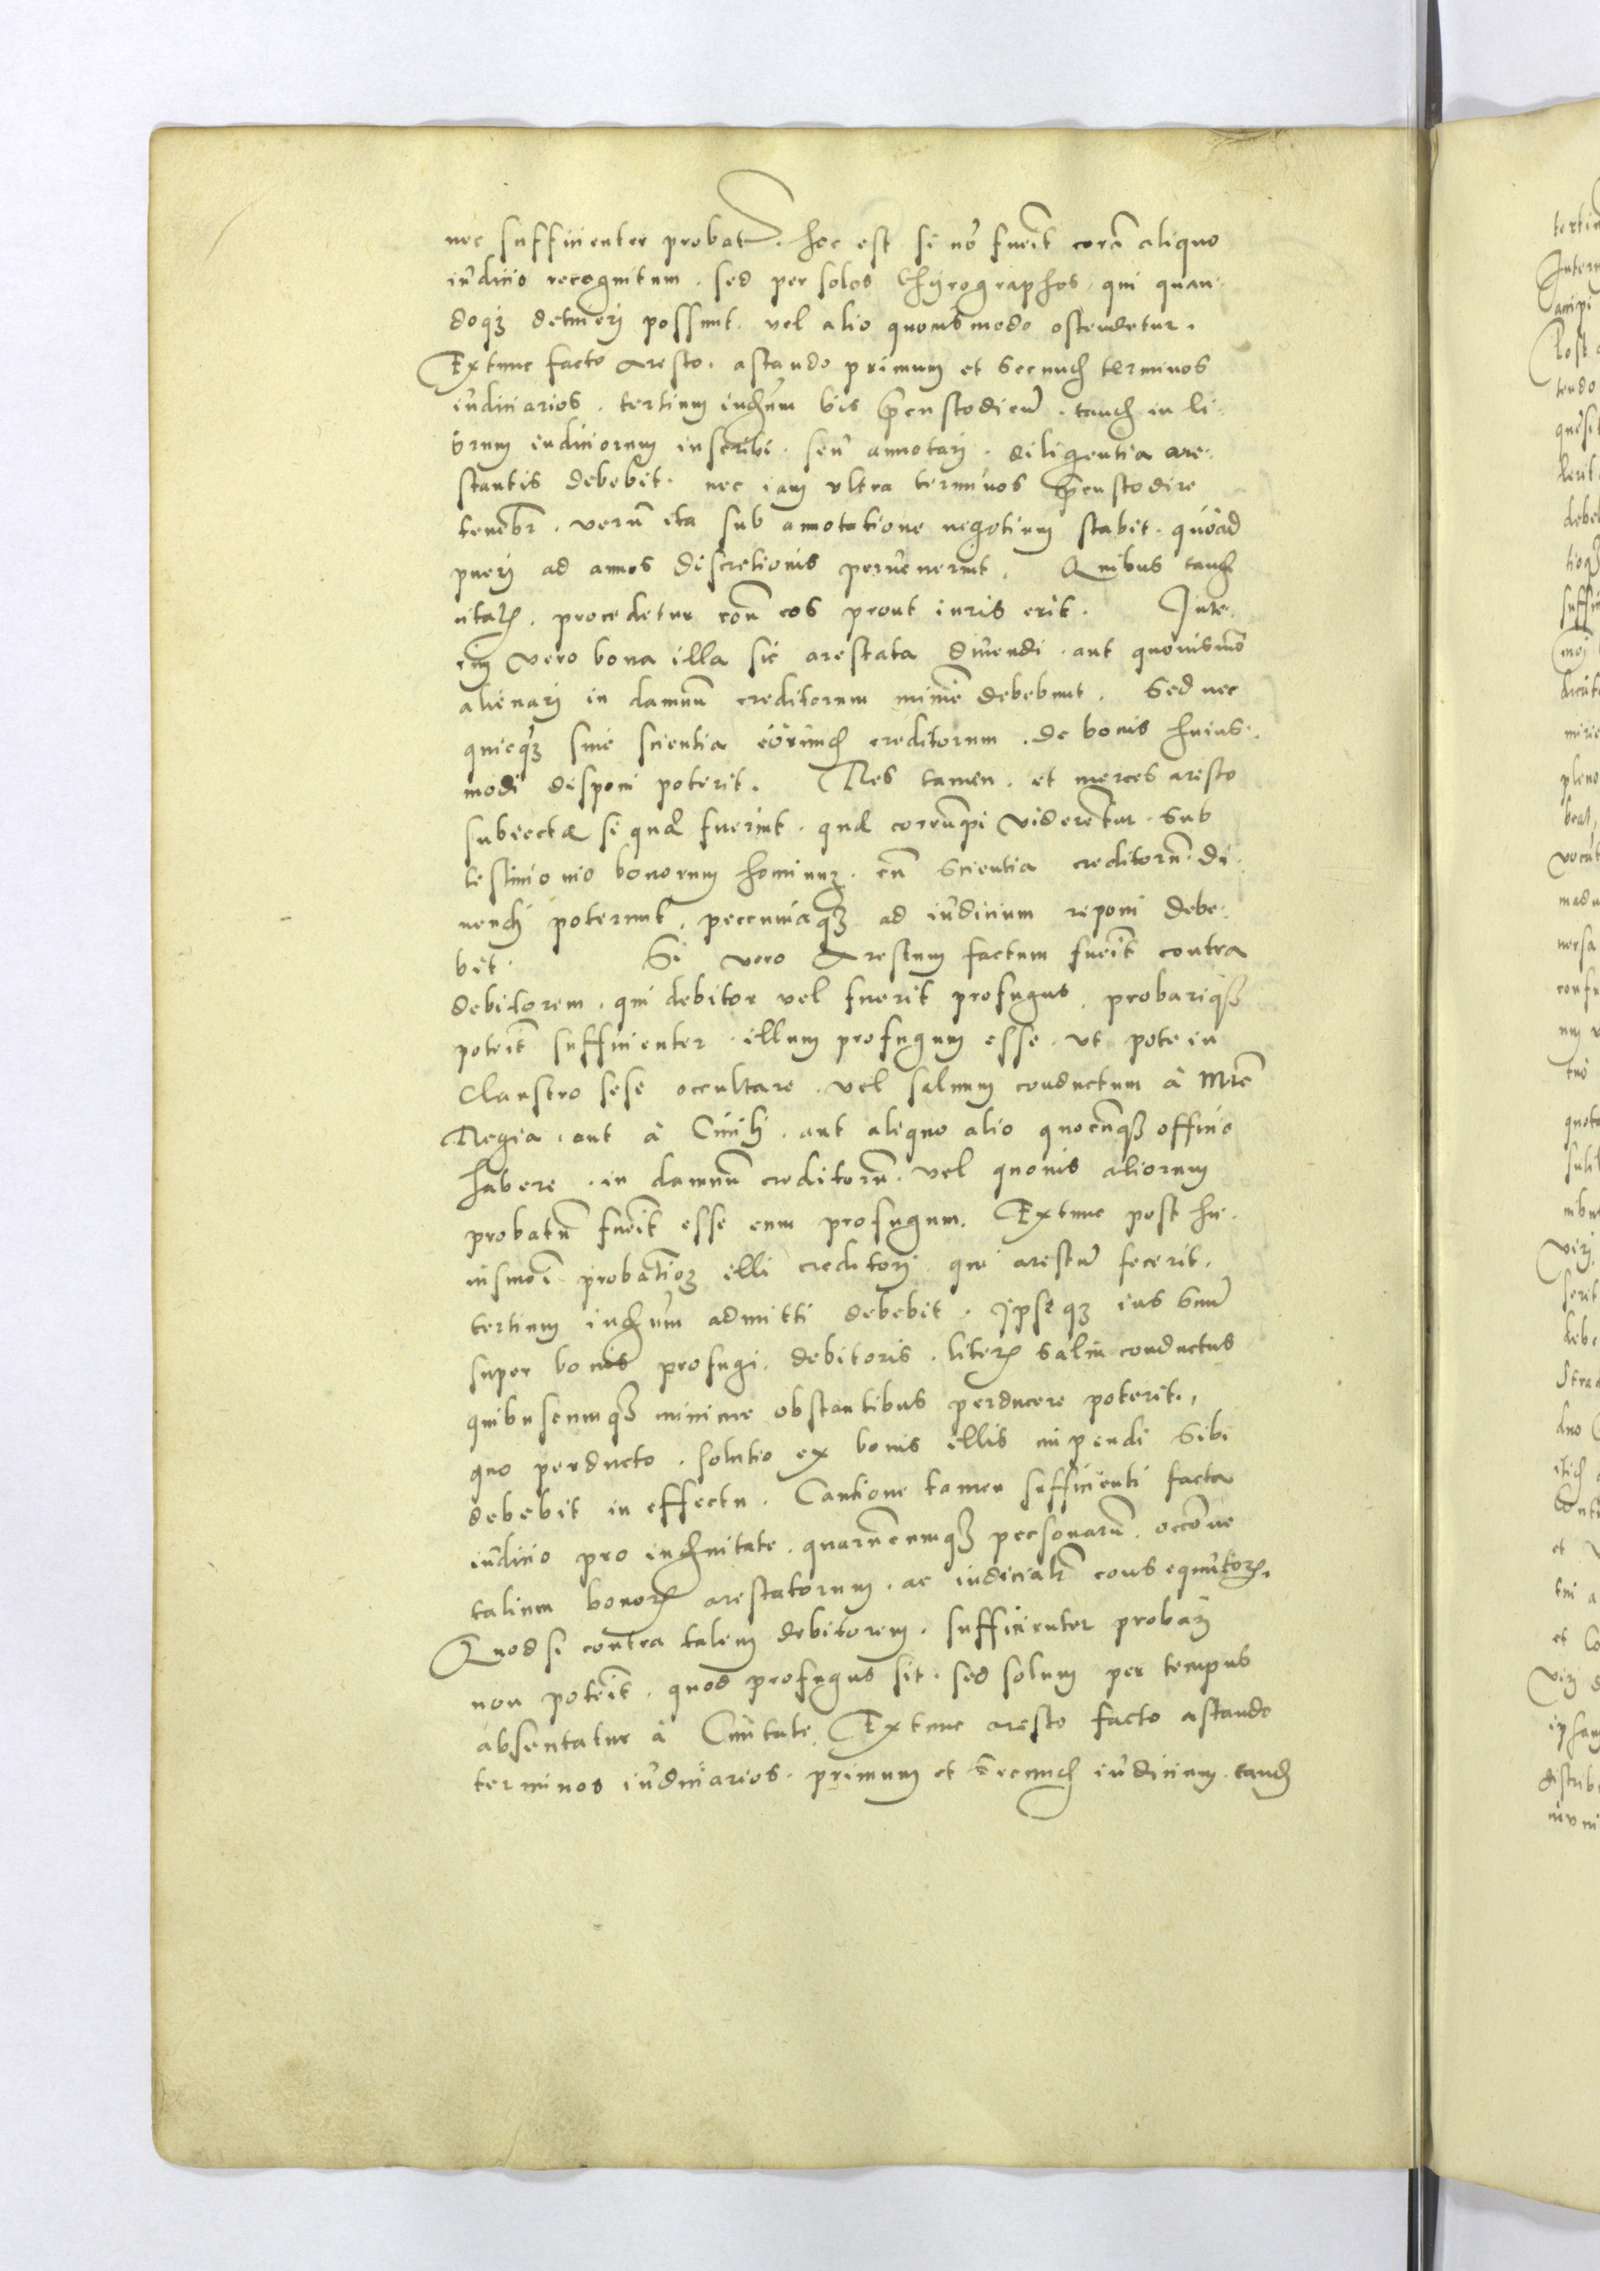 nec sufficienter probat̄. hoc est si nō fuerit corā aliquo
iudicio recognitum. sed per solos Chyrographos. qui quan-
doq3 detineri possunt. vel alio quouismodo ostendetur.
Extunc facto Aresto. astando primum et secund̄ terminos
iudiciarios. tertium iudicium bis p̄custodiend̄. tand̄ in li-
brum iudiciorum inscribi. seu annotari. diligentia are-
stantis debebit. nec iam vltra terminos p̄custodire
tenebr̄. verū ita sub annotatione negotium stabit. quoad
pueri ad annos discretionis peruenerint. Quibus tand̄
citat̄. procedetur cōtra eos prout iuris erit. Inte-
rim vero bona illa sic arestata diuendi. aut quouismō
alienari in damnū creditorum minime debebunt. Sed nec
quicq3 sine scientia eorund̄ creditorum. de bonis huius-
modi disponi poterit. Res tamen. et merces aresto
subiectæ si quæ fuerint. quæ corrūpi viderentur. sub
testimonio bonorum hominum. cū scientia creditorū. di-
uendi poterunt. peccuniaq3 ad iudicium reponi debe-
bit. Si vero Arestum factum fuerit contra
debitorem. qui debitor vel fuerit profugus. probariq3
poterit sufficienter. illum profugum esse. vt pote in
Claustro sese occultare. vel saluum conductum à Mt̄e
Regia. aut à Ciuili. aut aliquo alio quocunq3 officio
habere. in damnū creditorū. vel quouis aliorum
probatū fuerit esse eum profugum. Extunc post hu-
iusmōi probationē illi creditori. qui arestū fecerit.
tertium iudicium admitti debebit. Ipseq3 ius suum
super bonis profugi. debitoris. literis salui conductus
quibuscumq3 minime obstantibus perducere poterit.
quo perducto. solutio ex bonis illis impendi sibi
debebit in effectu. Cautione tamen sufficienti facta
iudicio pro indemnitate. quarūcumq3 personarū. occōne
talium bonor̄ arestatorum. ac iudicialr̄ consequutor̄.
Quod si contra talem debitorem. sufficienter probari
non poterit. quod profugus sit. sed solum per tempus
absentatur à Ciuitate. Extunc aresto facto astando
terminos iudiciarios. primum et secund̄ iudicium. tand̄